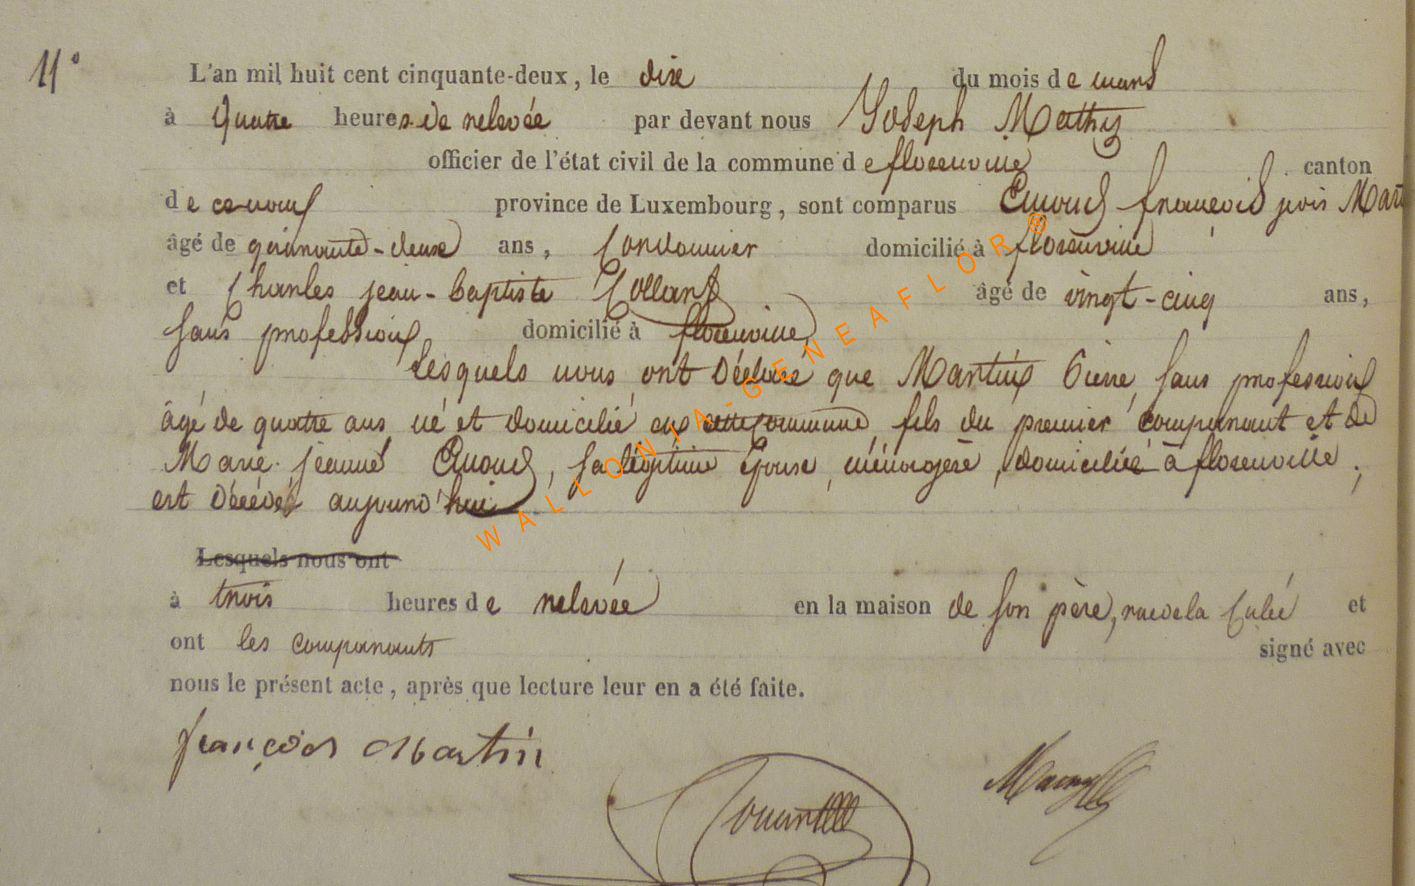 11°
L'an mil huit cent cinquante-deux, le dix du mois de mars
à quatre heures de relevée par devant nous Joseph Mathy
officier de l'état civil de la commune de florenville canton
de ce nom province de Luxembourg, sont comparus françois Mart
âgé de quarante-deux ans, Cordonnier domicilié à florenville
et Charles jean-baptiste âgé de vingt-cinq ans,
sans profession domicilié à florenville
Lesquels nous ont Déclaré que Martin Pierre, sans profession
âgé de quatre ans, né et domicilié en cette commune, fils du premier comparant et de
Marie jeanne, sa légitime Epouse, ménagère, domiciliée à florenville,
est Décédé aujourd'hui
Lesquels nous ont
à trois heures de relevée en la maison de son père, rue de la et
ont les comparants signé avec
nous le présent acte, après que lecture leur en a été faite.
françois Martin
WALLONIA-GENEAFLOR®